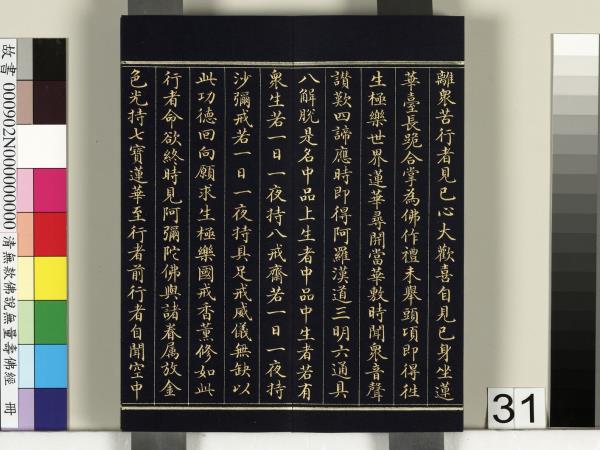 離衆苦行者見已心大歡喜自見已身坐蓮
華臺長跪合掌為佛作禮未舉頭頃即得往
生極樂世界蓮華尋開當華敷時聞衆音聲
讃歎四諦應時即得阿羅漢道三明六通具
八解脫是名中品上生者中品中生者若有
衆生若一日一夜持八戒齋若一日一夜持
沙彌戒若一日一夜持具足戒威儀無缺以
此功德回向願求生極樂國戒香薰修如此
行者命欲終時見阿彌陀佛與諸眷属放金
色光持七寶蓮華至行者前行者自聞空中
故書 000902N000000000 清無款佛說無量壽佛經 冊
31